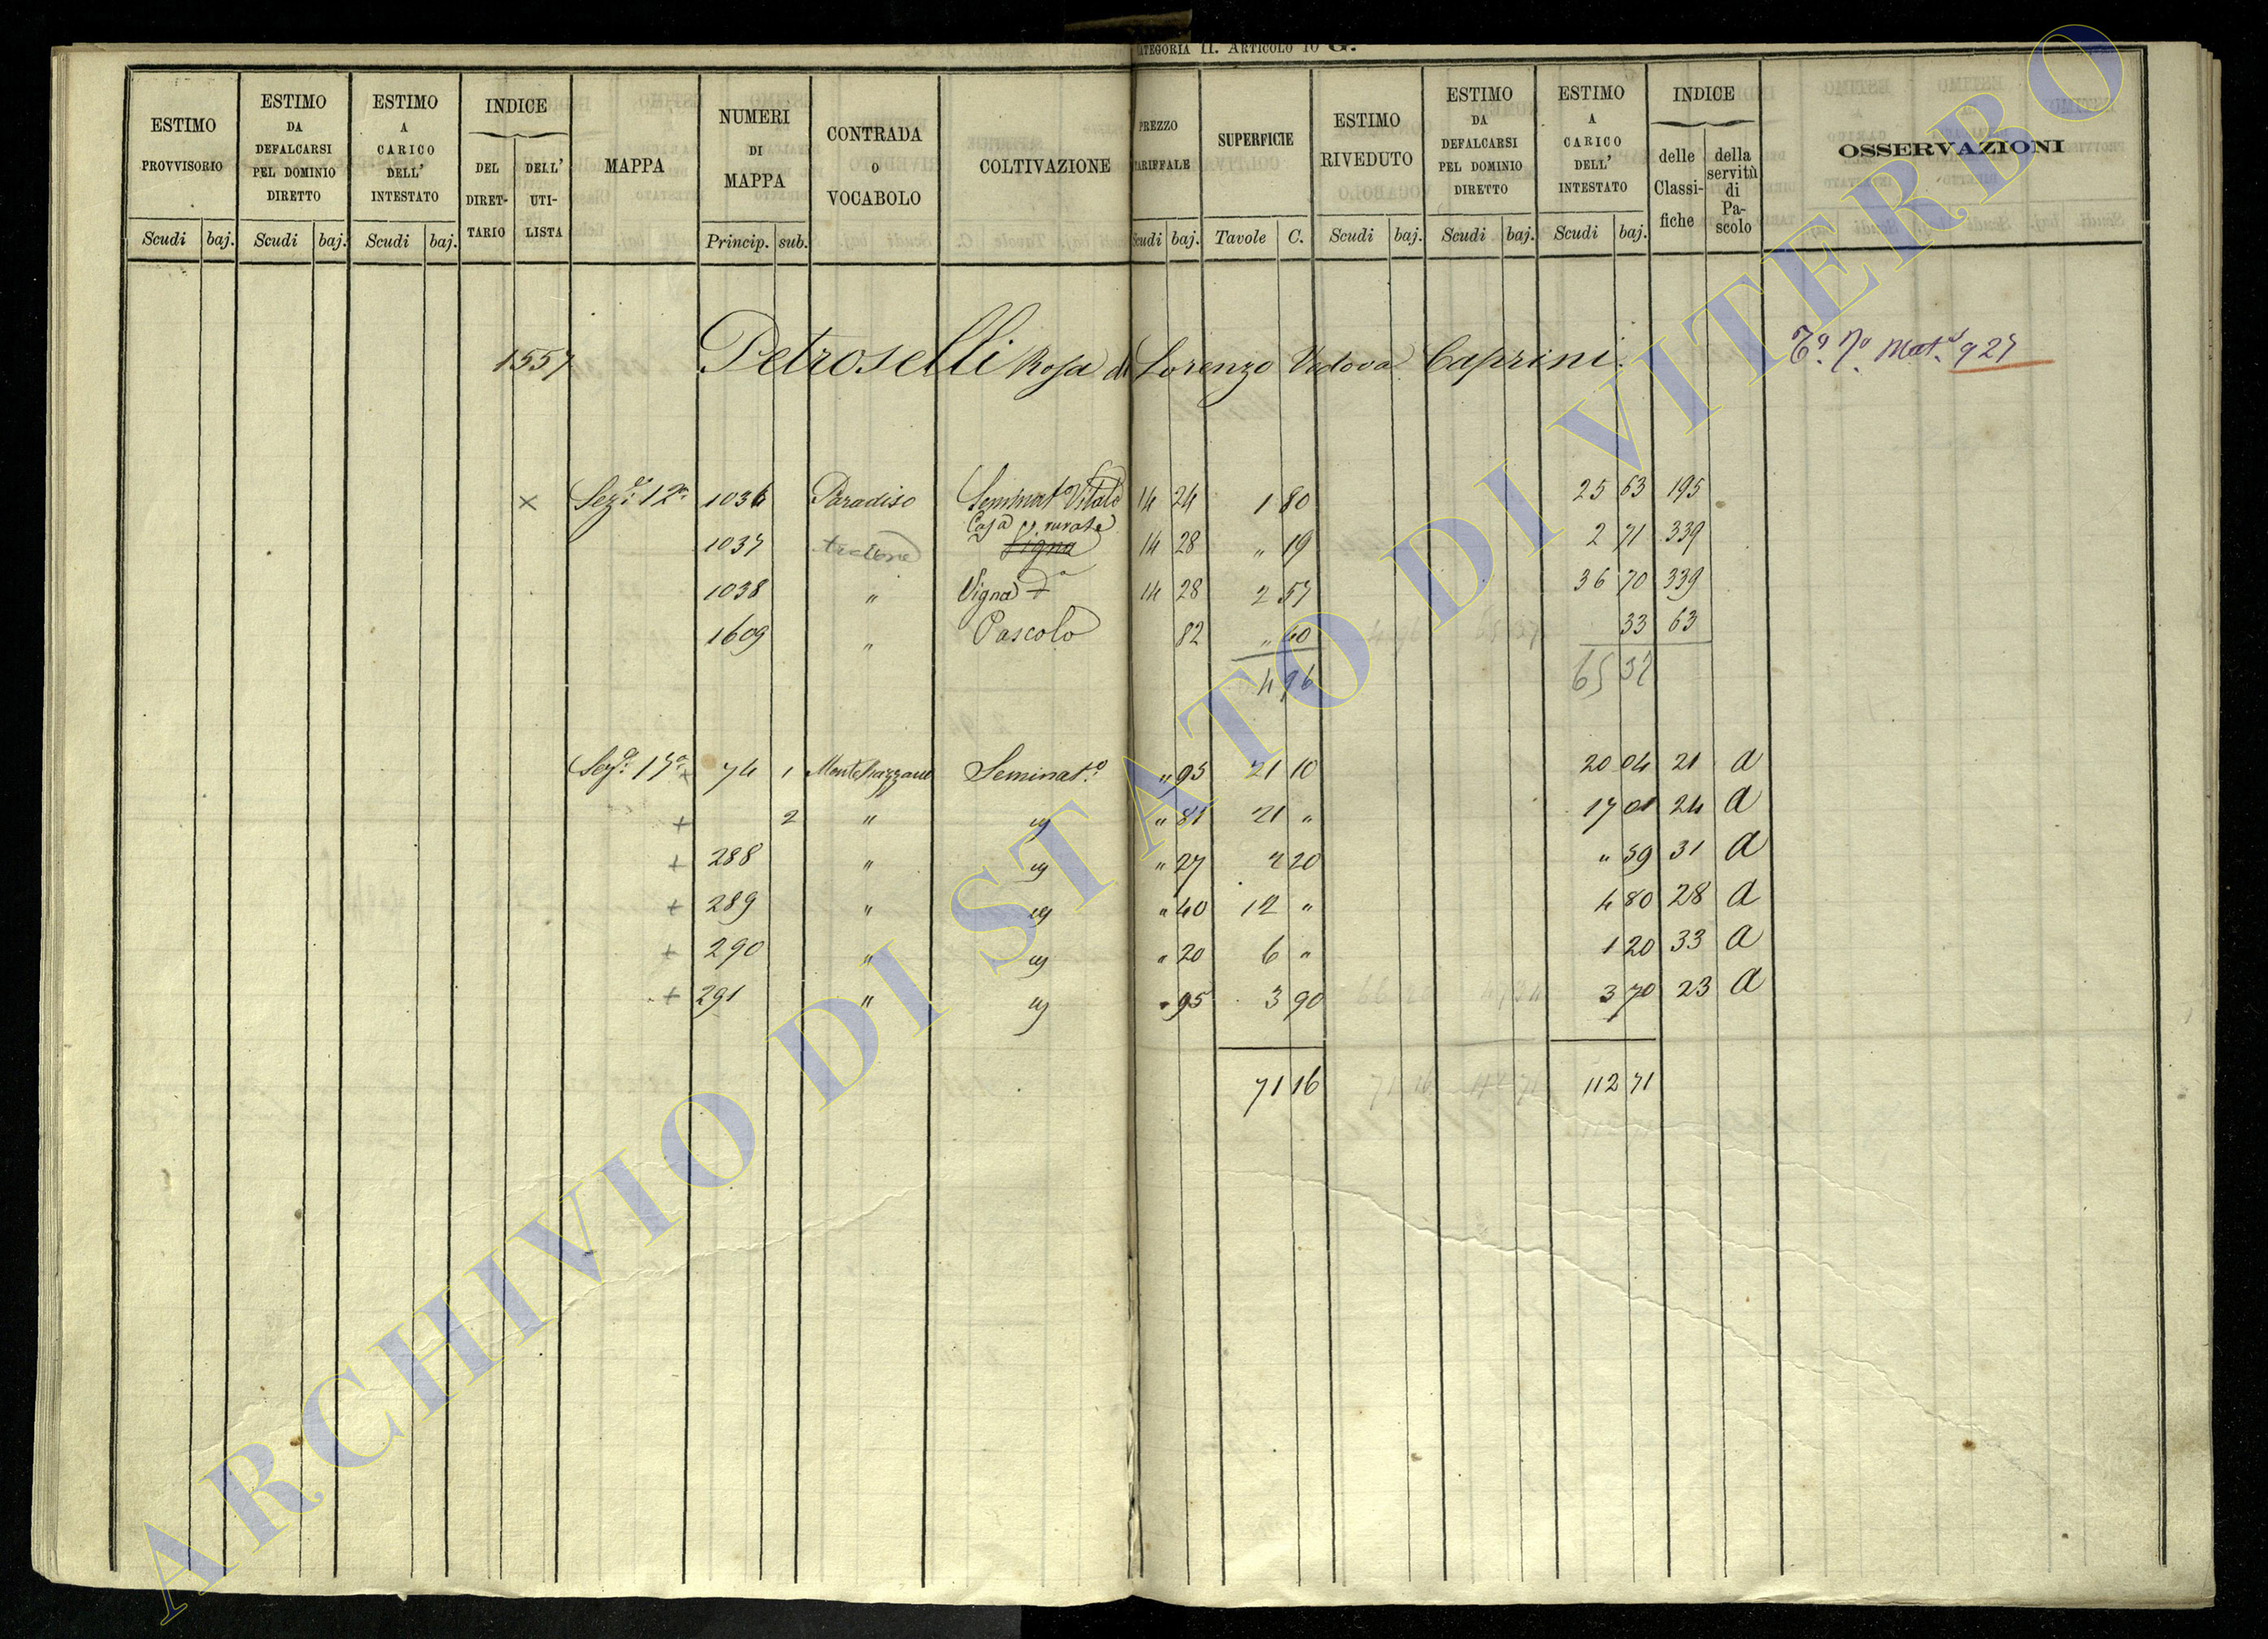 CATEGORIA II. ARTICOLO 10 G.
ESTIMO PROVVISORIO Scudi baj.
ESTIMO DA DEFALCARSI PEL DOMINIO DIRETTO Scudi baj.
ESTIMO A CARICO DELL' INTESTATO Scudi baj.
INDICE DEL DIRETTARIO DELL' UTILISTA
MAPPA
NUMERI DI MAPPA Princip. sub.
CONTRADA O VOCABOLO
COLTIVAZIONE
PREZZO TARIFFALE Scudi baj.
SUPERFICIE Tavole C.
ESTIMO RIVEDUTO Scudi baj.
ESTIMO DA DEFALCARSI PEL DOMINIO DIRETTO Scudi baj.
ESTIMO A CARICO DELL' INTESTATO Scudi baj.
INDICE delle Classifiche della servitù di Pascolo
OSSERVAZIONI
1557 Petroselli Rosa di Lorenzo Vedova Caprini. Mat. 927
× Sez. 12a 1036 Paradiso Seminat. Vitato 14 24 1 80 25 63 195
1037 Casa rurale Vigna 14 28 " 19 2 71 339
1038 " Vigna 14 28 2 57 36 70 339
1609 " Pascolo 82 " 40 33 63
4 96 65 37
Sez. 15a + 74 1 Montehazzano Seminat.o " 95 21 10 20 04 21 a
+ 2 " " 81 21 " 17 01 24 a
+ 288 " " 27 2 20 " 59 31 a
+ 289 " " 40 12 " 4 80 28 a
+ 290 " " 20 6 " 1 20 33 a
+ 291 " " 95 3 90 3 70 23 a
71 16 112 71
ARCHIVIO DI STATO DI VITERBO